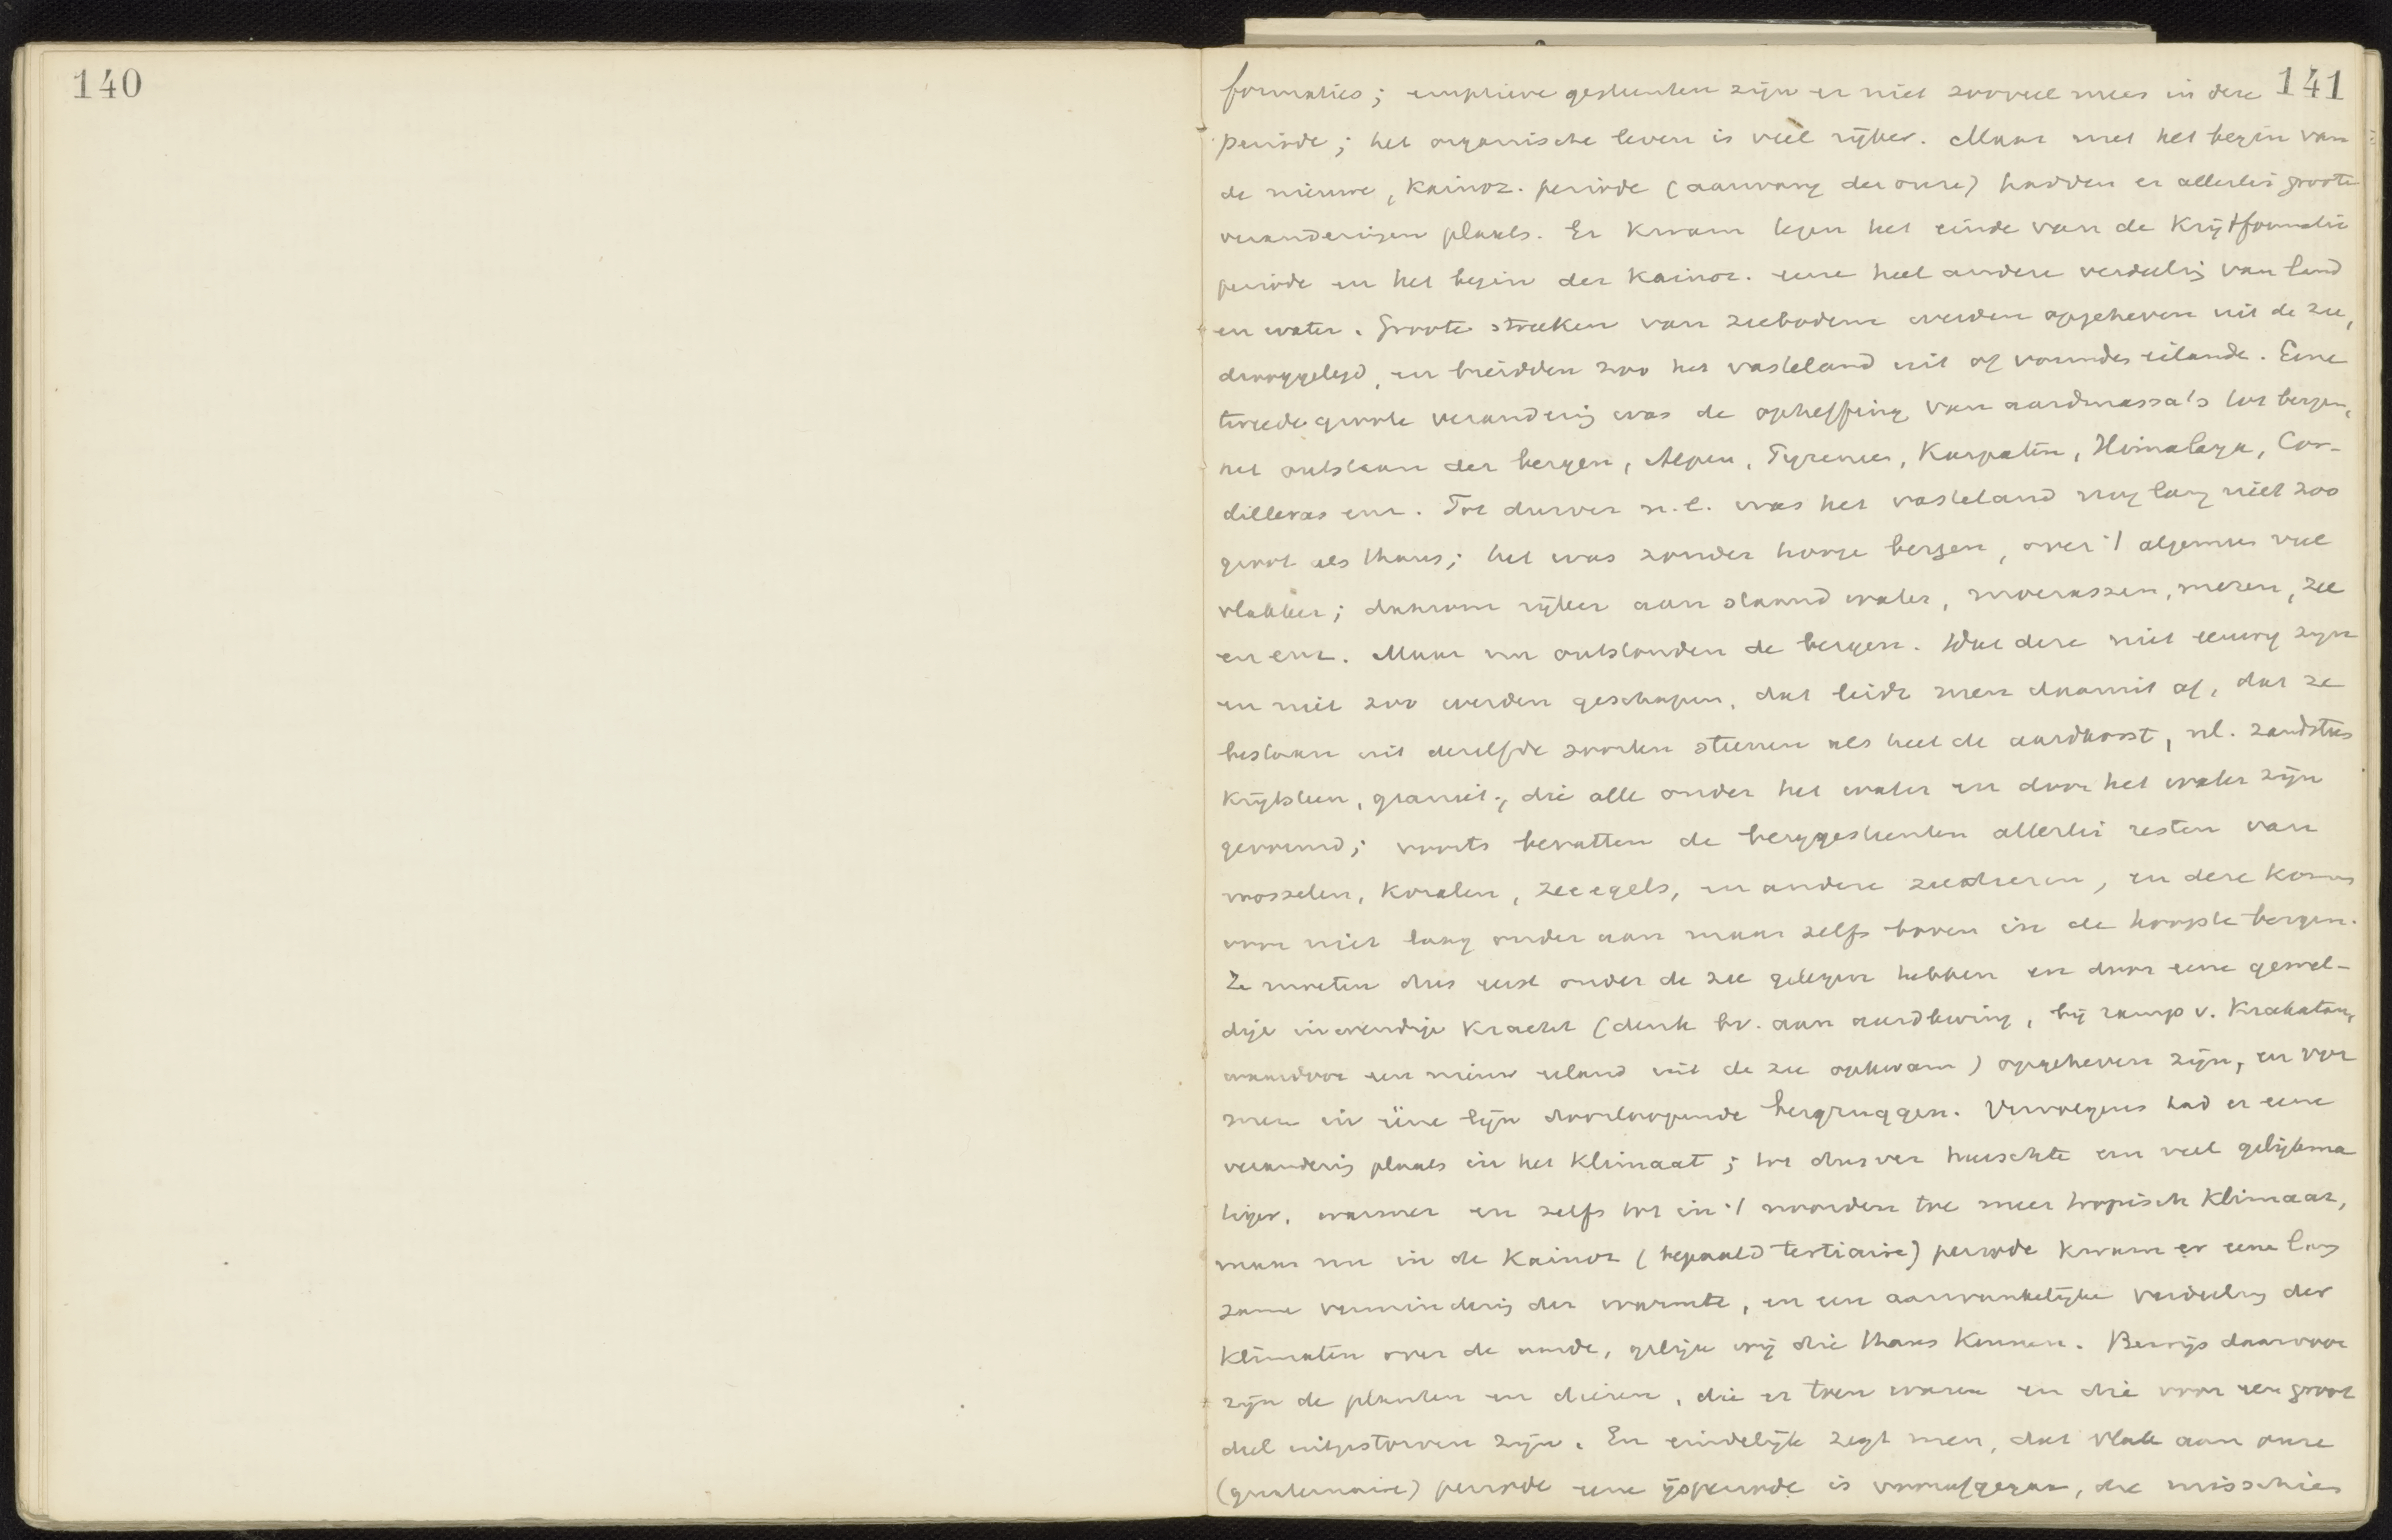 140
141
formaties; eruptieve gesteenten zijn er niet zooveel meer in deze
periode; het organische leven is veel rijker. Maar met het begin van
de nieuwe, Kainoz. periode (aanvang der onze) hadden er allerlei groote
veranderingen plaats. Er kwam tegen het einde van de Krijtformatie
periode en het begin der Kainoz. eene heel andere verdeeling van land
en water. Groote streken van zeebodem werden opgeheven uit de zee,
drooggelegd, en breidden zoo het vasteland uit of vormden eilande. Eene
tweede groote verandering was de opheffing van aardmassa's tot bergen,
het ontstaan der bergen, Alpen, Pyrenees, Karpaten, Himalaya, Cor-
dilleras enz. Tot dusver n.l. was het vasteland nog lang niet zoo
groot als thans; het was zonder hooge bergen, over 't algemeen veel
vlakker; daarom rijker aan staand water, moerassen, meren, zee
en enz. Maar nu ontstonden de bergen. Dat deze niet eeuwig zijn
en niet zoo werden geschapen, dat leidt men daaruit af, dat ze
bestaan uit dezelfde soorten steenen als heel de aardkorst, nl. zandsteen
Krijtsteen, graniet, die alle onder het water en door het water zijn
gevormd; voorts bevatten de berggesteenten allerlei resten van
mosselen, Koralen, zeeegels, en andere zeedieren, en deze komen
voor niet laag onder aan maar zelfs boven in de hoogste bergen.
Ze moeten dus eerst onder de zee gelegen hebben en door eene gewel-
dige inwendige Kracht (denk bv. aan aardbeving, bij ramp v. Krakatau,
waardoor een nieuw eiland uit de zee opkwam) opgeheven zijn, en vor
men in ééne lijn doorloopende bergruggen. Vervolgens had er eene
verandering plaats in het Klimaat; tot dusver heerschte een veel gelijkma
tiger, warmer en zelfs tot in 't noorden toe meer tropisch Klimaat,
maar nu in de Kainoz (bepaald tertiaire) periode kwam er eene lang
zame vermindering der warmte, en een aanvankelijke verdeeling der
Klimaten over de aarde, gelijk wij die thans Kennen. Bewijs daarvoor
zijn de planten en dieren, die er toen waren en die voor een groot
deel uitgestorven zijn. En eindelijk zegt men, dat vlak aan onze
(quaternaire) periode eene ijsperiode is voorafgegaan, die misschien